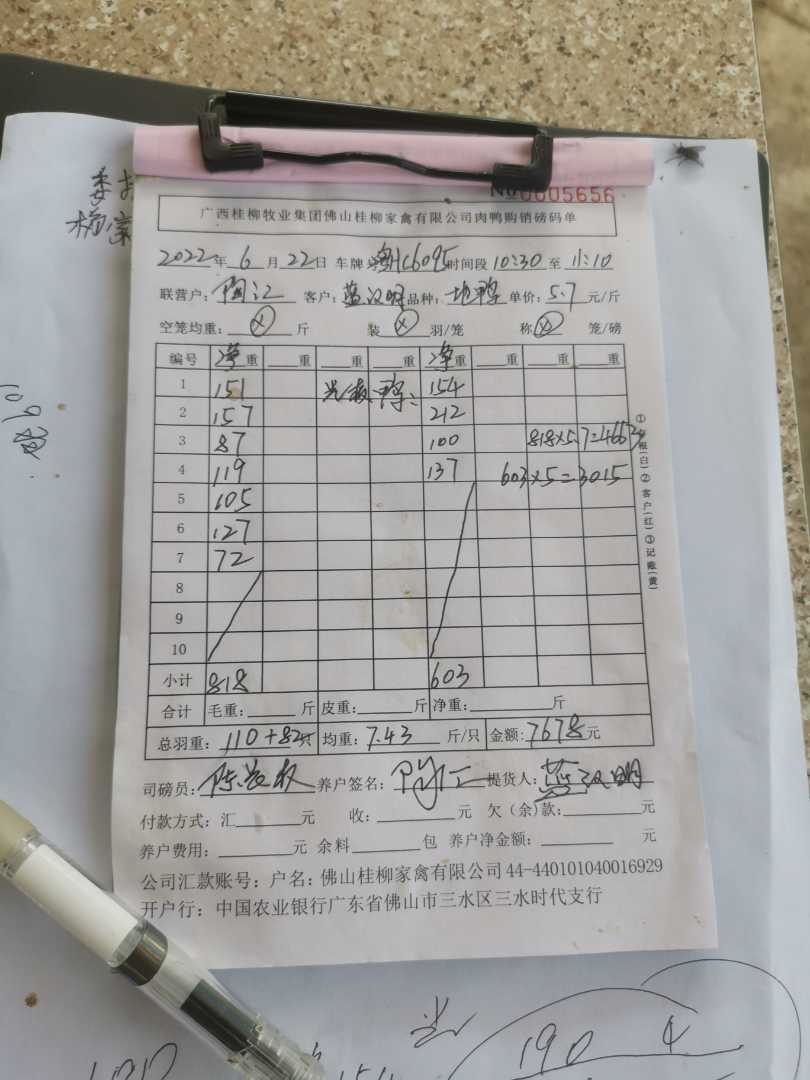 委
杨家
109
№0005656
广西桂柳牧业集团佛山桂柳家禽有限公司肉鸭购销磅码单
2022年 6 月 22日 车牌号:粤HC6095时间段 10:30 至 11:10
联营户: 陶江 客户: 蓝汉明 品种: 地鸭 单价: 5.7 元/斤
空笼均重: 斤 装 羽/笼 称 笼/磅
编号 净重 重 重 重 净重 重 重 重
1 151 鸭: 154
2 157 212
3 87 100 818×5.7=4663
4 119 137 603×5=3015
5 105
6 127
7 72
8
9
10
小计 818 603
合计 毛重: 斤 皮重: 斤 净重: 斤
总羽重: 110+82只 均重: 7.43 斤/只 金额: 7678元
司磅员: 陈 养户签名: 陶江 提货人: 蓝汉明
付款方式: 汇 元 收: 元 欠(余)款: 元
养户费用: 元 余料 包 养户净金额: 元
公司汇款账号: 户名: 佛山桂柳家禽有限公司 44-440101040016929
开户行: 中国农业银行广东省佛山市三水区三水时代支行
①存根(白)②客户(红)③记账(黄)
190 4